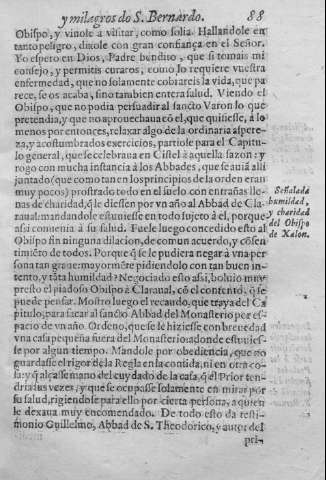 y milagros do S. Bernardo. 88
Obispo, y vinole a visitar, como solia. Hallandole en
tanto peligro, dixole con gran confiança en el Señor.
Yo espero en Dios, Padre bendito, que si tomais mi
consejo, y permitis curaros, como lo requiere vuestra
enfermedad, que no solamente cobrareis la vida, que pa
rece, se os acaba, sino tambien entera salud. Viendo el
Obispo, que no podia persuadir al sancto Varon lo que
pretendia, y que no aprouechaua cõ el, que quisiesse, a lo
menos por entonces, relaxar algo de la ordinaria aspere-
za, y acostumbrados exercicios, partiose para el Capitu-
lo general, que se celebraua en Cistel à aquella sazon: y
rogo con mucha instancia à los Abbades, que se auiã alli
juntado (que como tan en los principios de la orden eran
muy pocos) prostrado todo en el suelo con entrañas lle-
nas de charidad, q̃ le diessen por vn año al Abbad de Cla-
raual: mandandole estuuiesse en todo sujeto à el, porque
assi conuenia à su salud. Fuele luego concedido esto al
Obispo sin ninguna dilacion, de comun acuerdo, y cõsen
timiẽto de todos. Porque q̃ se le pudiera negar à vna per
sona tan graue: mayormẽte pidiendolo con tan buen in-
tento, y tãta humildad? Negociado esto assi, boluio muy
presto el piadoso Obispo à Claraual, cõ el contento, q̃ se
puede pensar. Mostro luego el recaudo, que traya del Ca
pitulo, para sacar al sancto Abbad del Monasterio por es-
pacio de vn año. Ordeno, que se le hiziesse con breuedad
vna casa pequeña fuera del Monasterio: adonde estuuies-
se por algun tiempo. Mandole por obediencia, que no
guardasse el rigor de la Regla en la comida, ni en otra co
sa: y q̃ alçasse mano del cuydado de la casa, q̃ el Prior ten-
dria sus vezes, y que se ocupasse solamente en mirar por
su salud, rigiendose para ello por cierta persona, a quien
le dexaua muy encomendado. De todo esto da testi-
monio Guillelmo, Abbad de S. Theodorico, y autor del
pri-
Señalada
humildad,
y charidad
del Obispo
de Xalon.